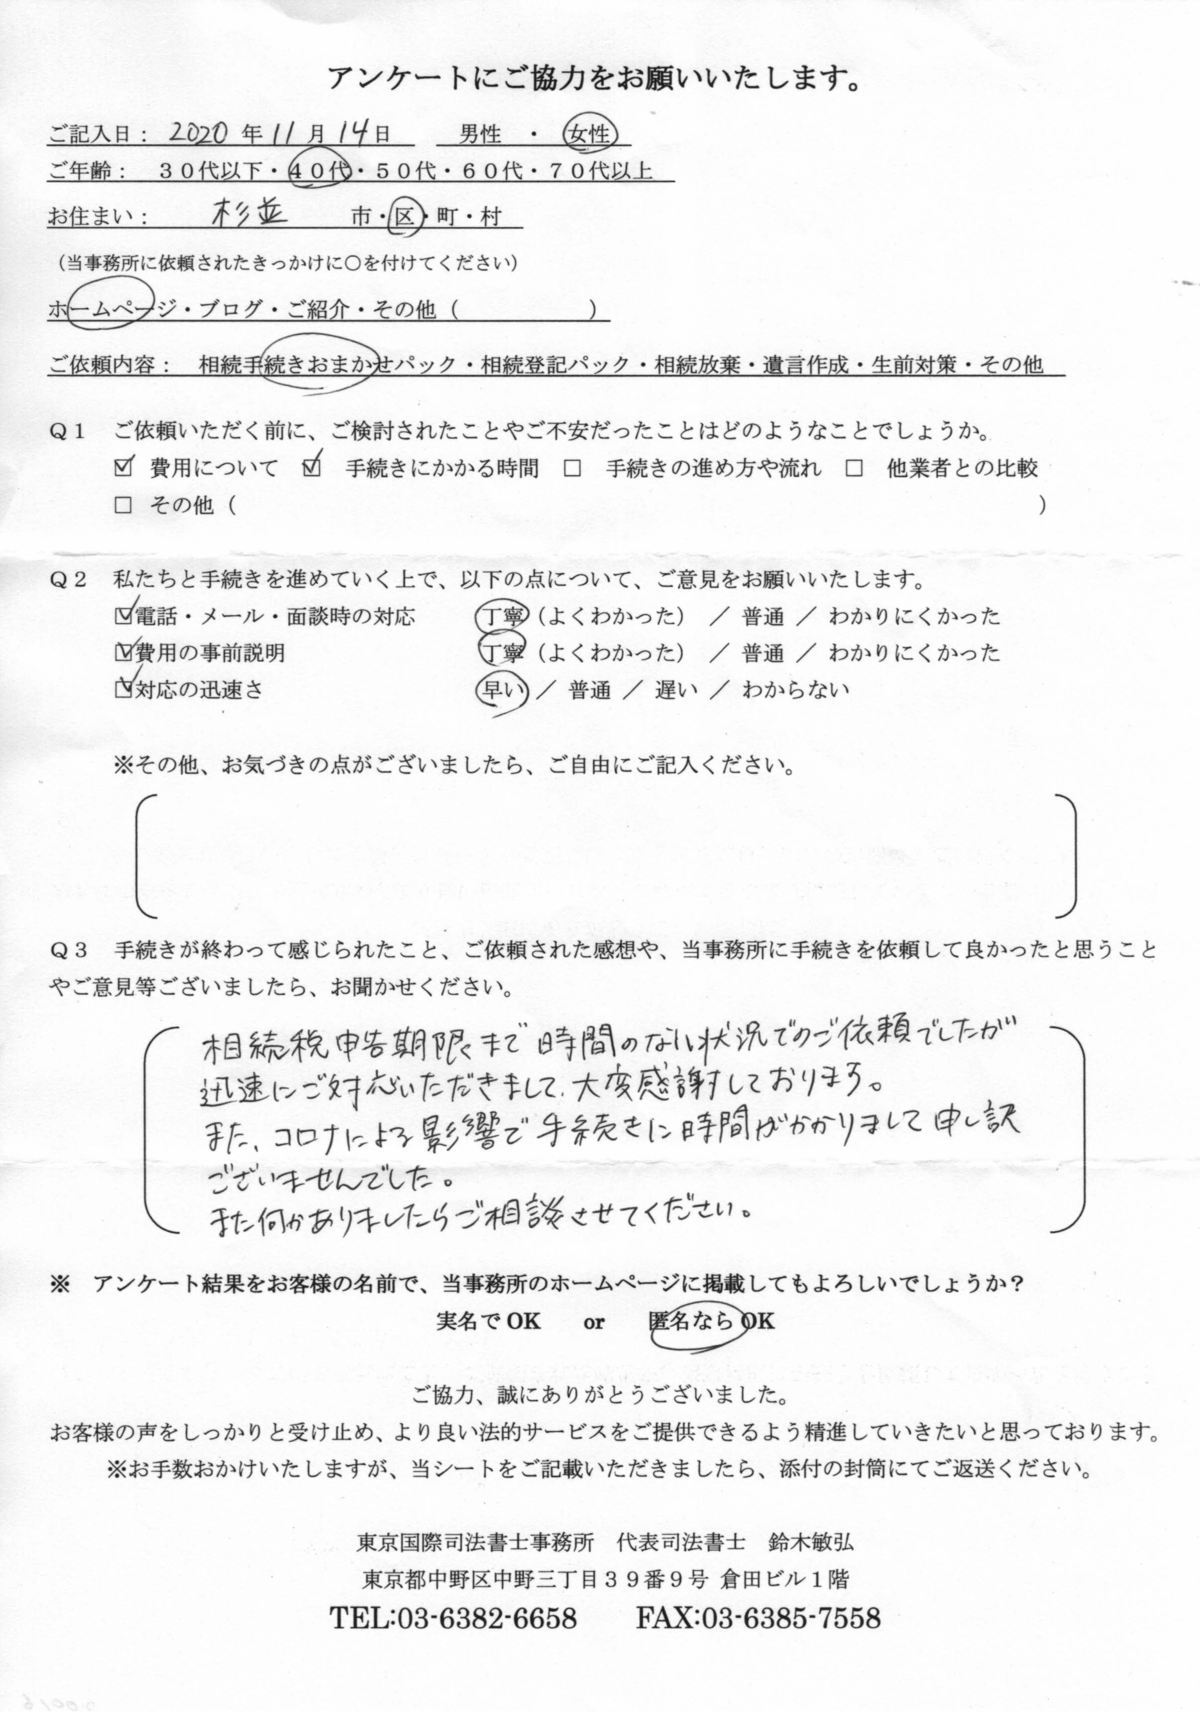 アンケートにご協力をお願いいたします。
ご記入日： 2020 年 11 月 14 日　男性　・　女性
ご年齢：　３０代以下・４０代・５０代・６０代・７０代以上
お住まい：　杉並　市・区・町・村
（当事務所に依頼されたきっかけに○を付けてください）
ホームページ・ブログ・ご紹介・その他（　　　　　　）
ご依頼内容：　相続手続きおまかせパック・相続登記パック・相続放棄・遺言作成・生前対策・その他
Ｑ１　ご依頼いただく前に、ご検討されたことやご不安だったことはどのようなことでしょうか。
☑ 費用について　☑ 手続きにかかる時間　□ 手続きの進め方や流れ　□ 他業者との比較
□ その他（　　　　　　　　　　　　　　　　　　　　）
Ｑ２　私たちと手続きを進めていく上で、以下の点について、ご意見をお願いいたします。
☑電話・メール・面談時の対応　　丁寧（よくわかった）　／　普通　／　わかりにくかった
☑費用の事前説明　　丁寧（よくわかった）　／　普通　／　わかりにくかった
☑対応の迅速さ　　早い　／　普通　／　遅い　／　わからない
※その他、お気づきの点がございましたら、ご自由にご記入ください。
Ｑ３　手続きが終わって感じられたこと、ご依頼された感想や、当事務所に手続きを依頼して良かったと思うこと
やご意見等ございましたら、お聞かせください。
相続税申告期限まで時間のない状況でのご依頼でしたが
迅速にご対応いただきまして、大変感謝しております。
また、コロナによる影響で手続きに時間がかかりまして申し訳
ございませんでした。
また何かありましたらご相談させてください。
※　アンケート結果をお客様の名前で、当事務所のホームページに掲載してもよろしいでしょうか？
実名で OK　　or　　匿名なら OK
ご協力、誠にありがとうございました。
お客様の声をしっかりと受け止め、より良い法的サービスをご提供できるよう精進していきたいと思っております。
※お手数おかけいたしますが、当シートをご記載いただきましたら、添付の封筒にてご返送ください。
東京国際司法書士事務所　代表司法書士　鈴木敏弘
東京都中野区中野三丁目３９番９号 倉田ビル１階
TEL:03-6382-6658　　FAX:03-6385-7558